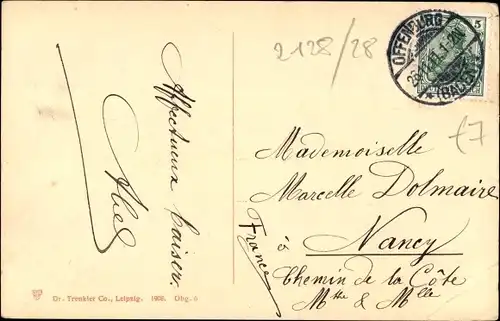 2128/28
5
OFFENBURG
(BADEN)
£7
Affectueux baiser.
Mademoiselle
Marcelle Dolmaire
à Nancy
France
Chemin de la Côte
Mtte & Mlle
Dr. Trenkler Co., Leipzig. 1906. Obg. 6